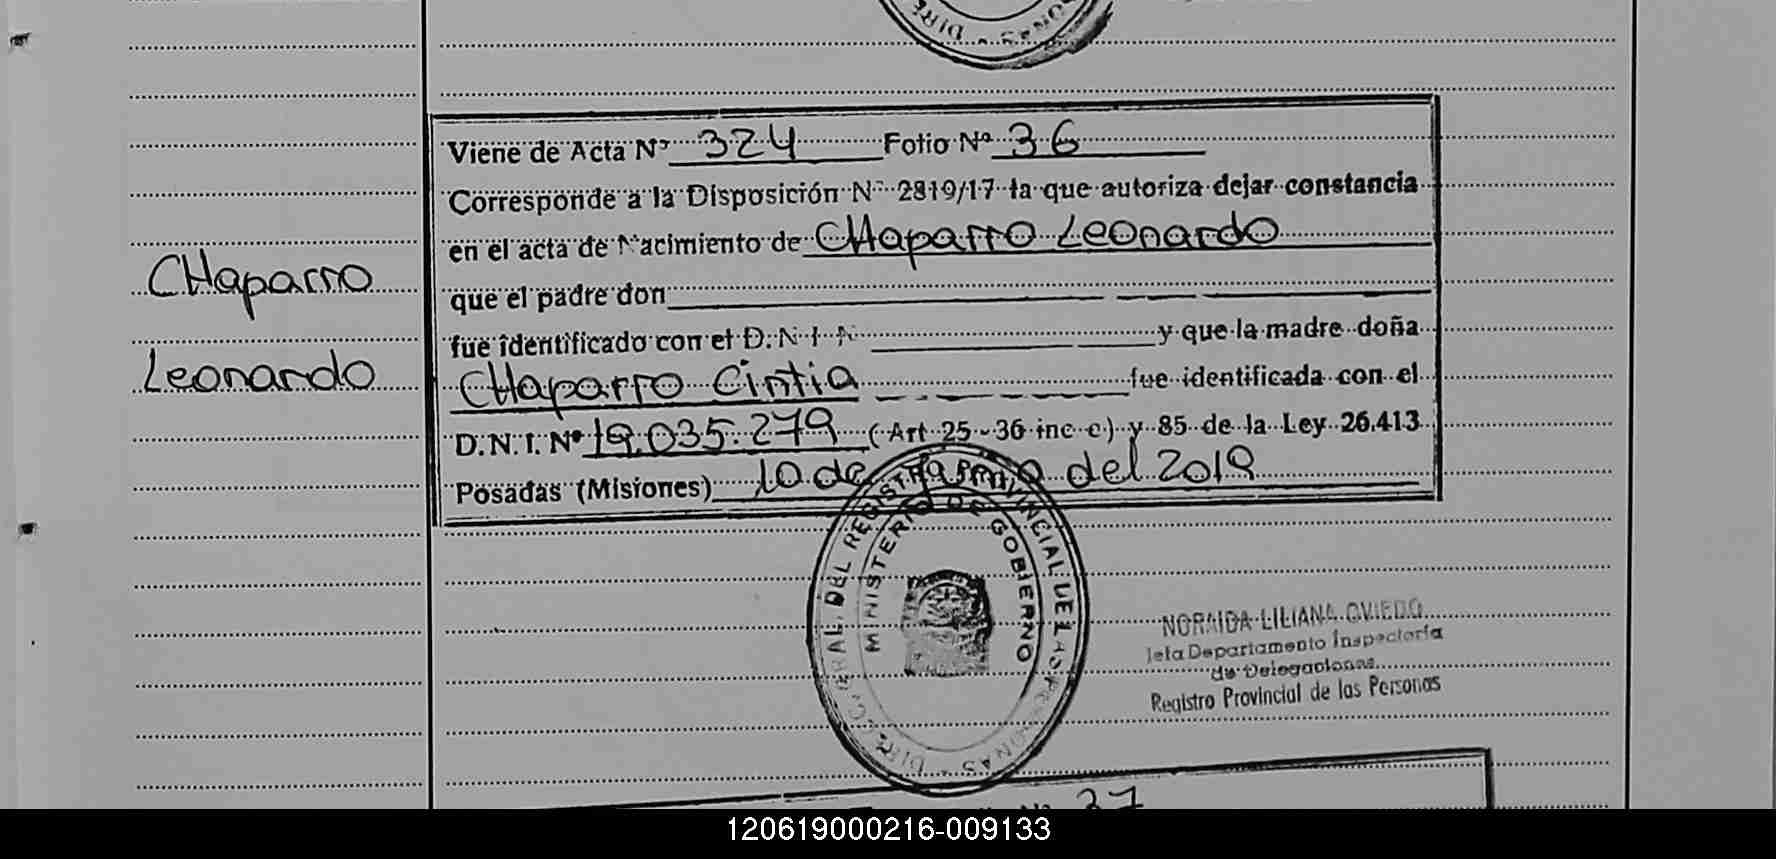 Viene de Acta Nº 324 Folio Nº 36
Corresponde a la Disposición Nº 2819/17 la que autoriza dejar constancia
en el acta de Nacimiento de CHaparro Leonardo
que el padre don
fue identificado con el D.N.I.N y que la madre doña
CHaparro Cintia fue identificada con el
D.N.I. Nº 19.035.279 (Art 25-36 inc c) y 85 de la Ley 26.413
Posadas (Misiones) 10 de del 2019
CHaparro
Leonardo
DIRECCION GENERAL DEL REGISTRO PROVINCIAL DE LAS PERSONAS
MINISTERIO DE GOBIERNO
NORAIDA LILIANA OVIEDO
Jefa Departamento Inspectoría
de Delegaciones
Registro Provincial de las Personas
Nº 37
120619000216-009133